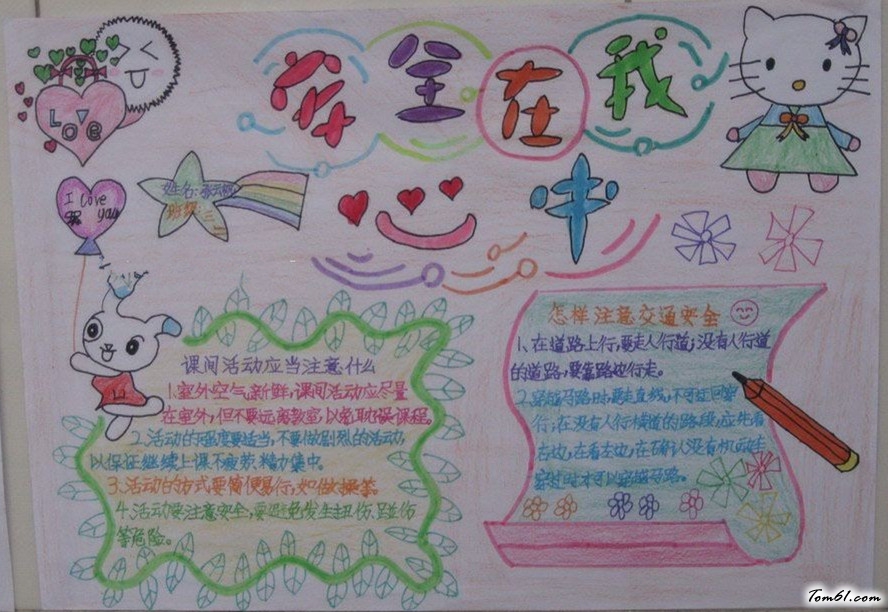 安全在我
心中
LOVE
I love
you
姓名:
班级:三
课间活动应当注意什么
1.室外空气新鲜,课间活动应尽量
在室外,但不要远离教室,以免耽误课程。
2、活动的强度要适当,不要做剧烈的活动,
以保证继续上课不疲劳、精力集中。
3、活动的方式要简便易行,如做做操等。
4、活动要注意安全,要避免发生扭伤、碰伤
等危险。
怎样注意交通安全
1、在道路上行,要走人行道;没有人行道
的道路,要靠路边行走。
2.穿越马路时,要走直线,不可迂回穿
行;在没有人行横道的路段,应先看
左边,在看右边,在确认没有机动车
才可以穿越马路。
Tom61.com